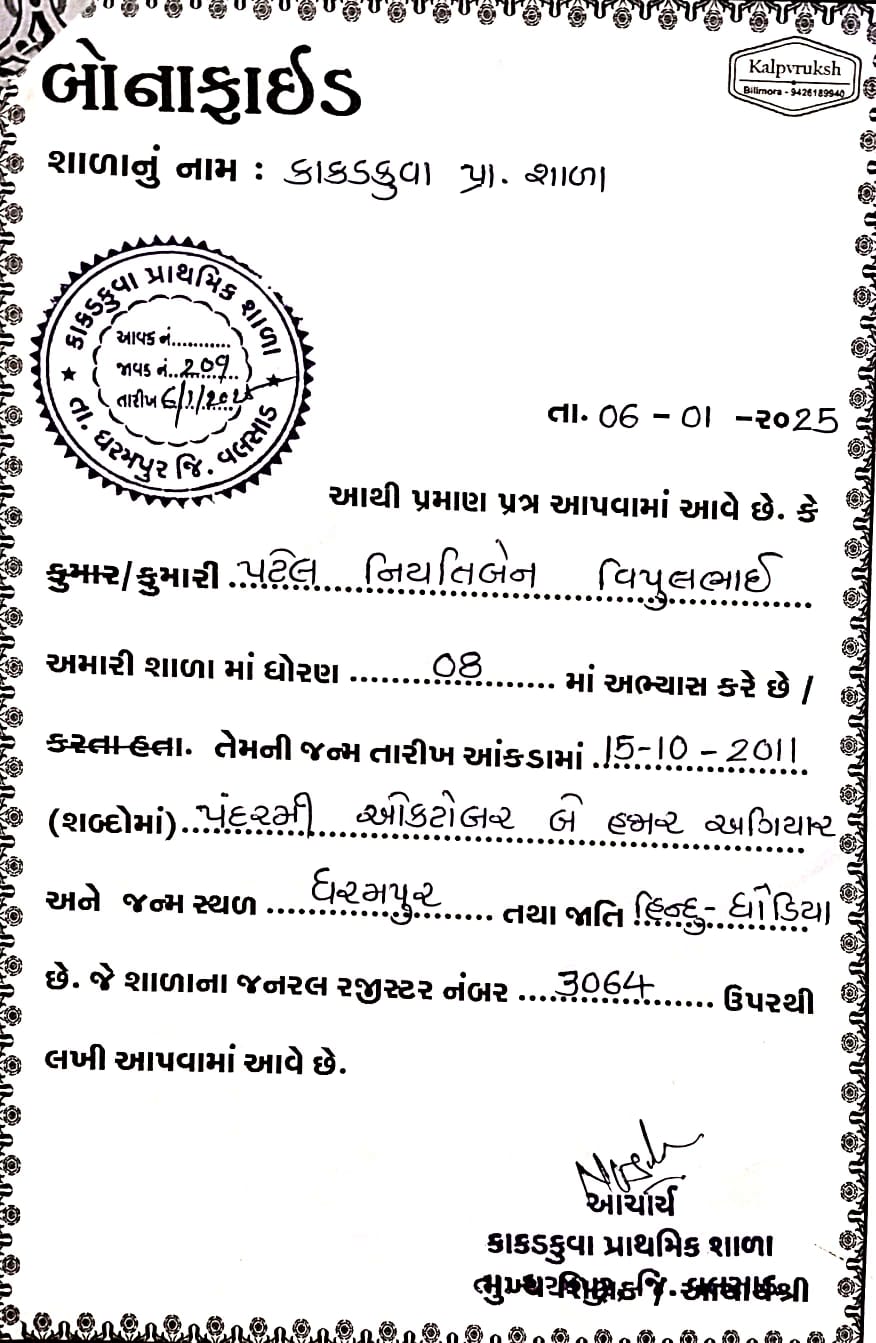 બોનાફાઈડ
Kalpvruksh
Bilimora - 9426189940
શાળાનું નામ : કાકડકુવા પ્રા. શાળા
કાકડકુવા પ્રાથમિક શાળા
આવક નં...........
જાવક નં..209..
તારીખ 6/1/2025
તા. ધરમપુર જિ. વલસાડ
તા. 06 - 01 -૨૦25
આથી પ્રમાણ પત્ર આપવામાં આવે છે. કે
કુમાર/કુમારી ..પટેલ નિયતિબેન વિપુલભાઈ
અમારી શાળા માં ધોરણ ........08......... માં અભ્યાસ કરે છે /
કરતા હતા. તેમની જન્મ તારીખ આંકડામાં .15-10-2011
(શબ્દોમાં)..પંદરમી ઓક્ટોબર બે હજાર અગિયાર
અને જન્મ સ્થળ ....ધરમપુર........ તથા જાતિ હિન્દુ- ધોડિયા
છે. જે શાળાના જનરલ રજીસ્ટર નંબર ....3064......... ઉપરથી
લખી આપવામાં આવે છે.
આચાર્ય
કાકડકુવા પ્રાથમિક શાળા